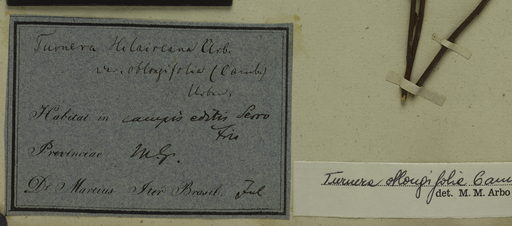 Turnera Hilaireana Urb.
var. oblongifolia (Camb.)
Urban.
Habitat in campis editis Serro
Frio
Provinciae M.G.
Dr Martius Iter Brasil. Jul
Turnera oblongifolia Cam
det. M. M. Arbo